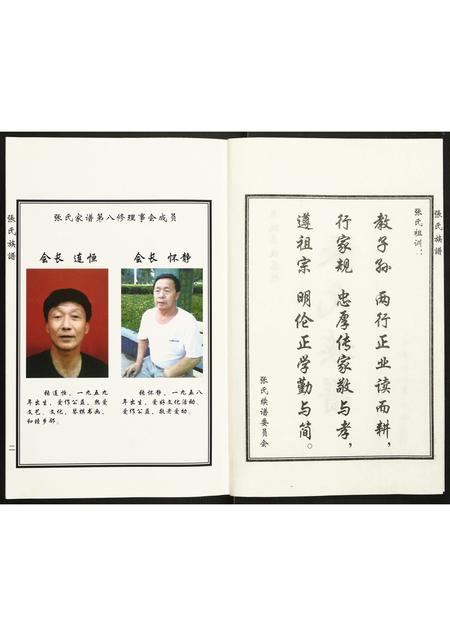 張氏族譜
张氏祖训：
教子孙 两行正业读而耕，
行家规 忠厚传家敬与孝，
遵祖宗 明伦正学勤与简。
张氏续谱委员会
张氏家谱第八修理事会成员
会长 连恒
会长 怀静
张连恒，一九五九
年出生，爱作公益，热爱
文艺、文化、琴棋书画，
和睦乡邻。
张怀静，一九五八
年出生，爱好文化活动，
爱作公益，敬老爱幼。
張氏族譜
二